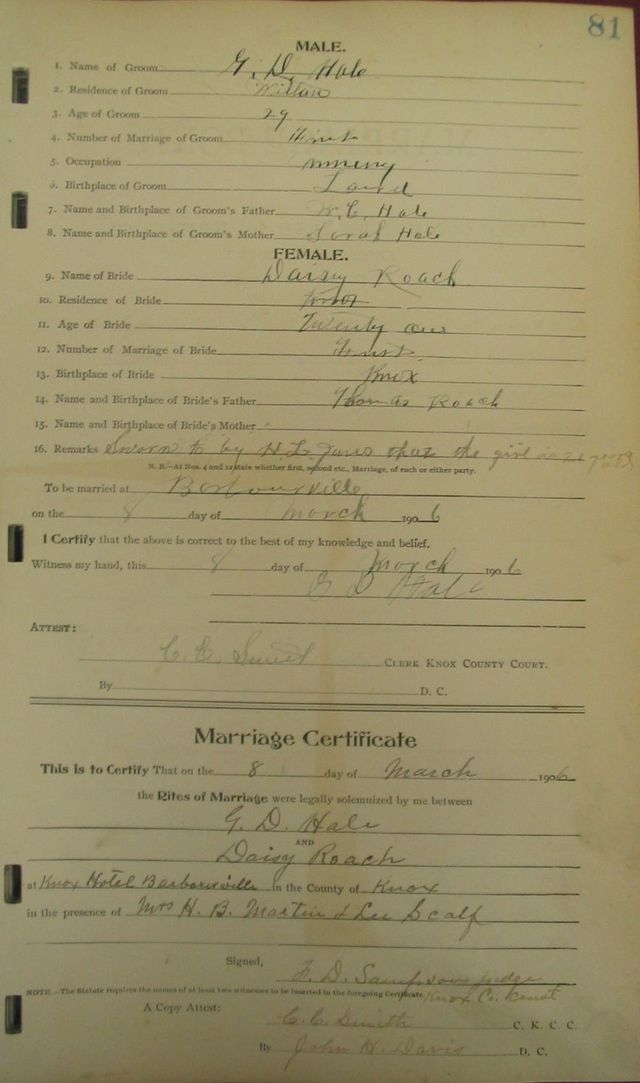 81
MALE.
1. Name of Groom G. D. Hale
2. Residence of Groom Wilton
3. Age of Groom 29
4. Number of Marriage of Groom First
5. Occupation
6. Birthplace of Groom
7. Name and Birthplace of Groom's Father W. C. Hale
8. Name and Birthplace of Groom's Mother Sarah Hale
FEMALE.
9. Name of Bride Daisy Roach
10. Residence of Bride Knox
11. Age of Bride Twenty one
12. Number of Marriage of Bride First
13. Birthplace of Bride Knox
14. Name and Birthplace of Bride's Father Thomas Roach
15. Name and Birthplace of Bride's Mother
16. Remarks Sworn to by H. L. that the girl is 21 years
N. B.—At Nos. 4 and 12 state whether first, second etc., Marriage, of each or either party.
To be married at Barbourville
on the 8 day of March 1906
I Certify that the above is correct to the best of my knowledge and belief.
Witness my hand, this 8 day of March 1906
G D Hale
ATTEST:
C. C. Smith CLERK KNOX COUNTY COURT.
By D. C.
Marriage Certificate
This is to Certify That on the 8 day of March 1906
the Rites of Marriage were legally solemnized by me between
G. D. Hale
AND
Daisy Roach
at Knox Hotel Barbourville in the County of Knox
in the presence of Mrs H. B. Martin & Lee Scalf
Signed, F. D. Sampson Judge
NOTE.—The Statute requires the names of at least two witnesses to be inserted in the foregoing Certificate. Knox Co. Court
A Copy Attest: C. C. Smith C. K. C. C.
By John H. Davis D. C.